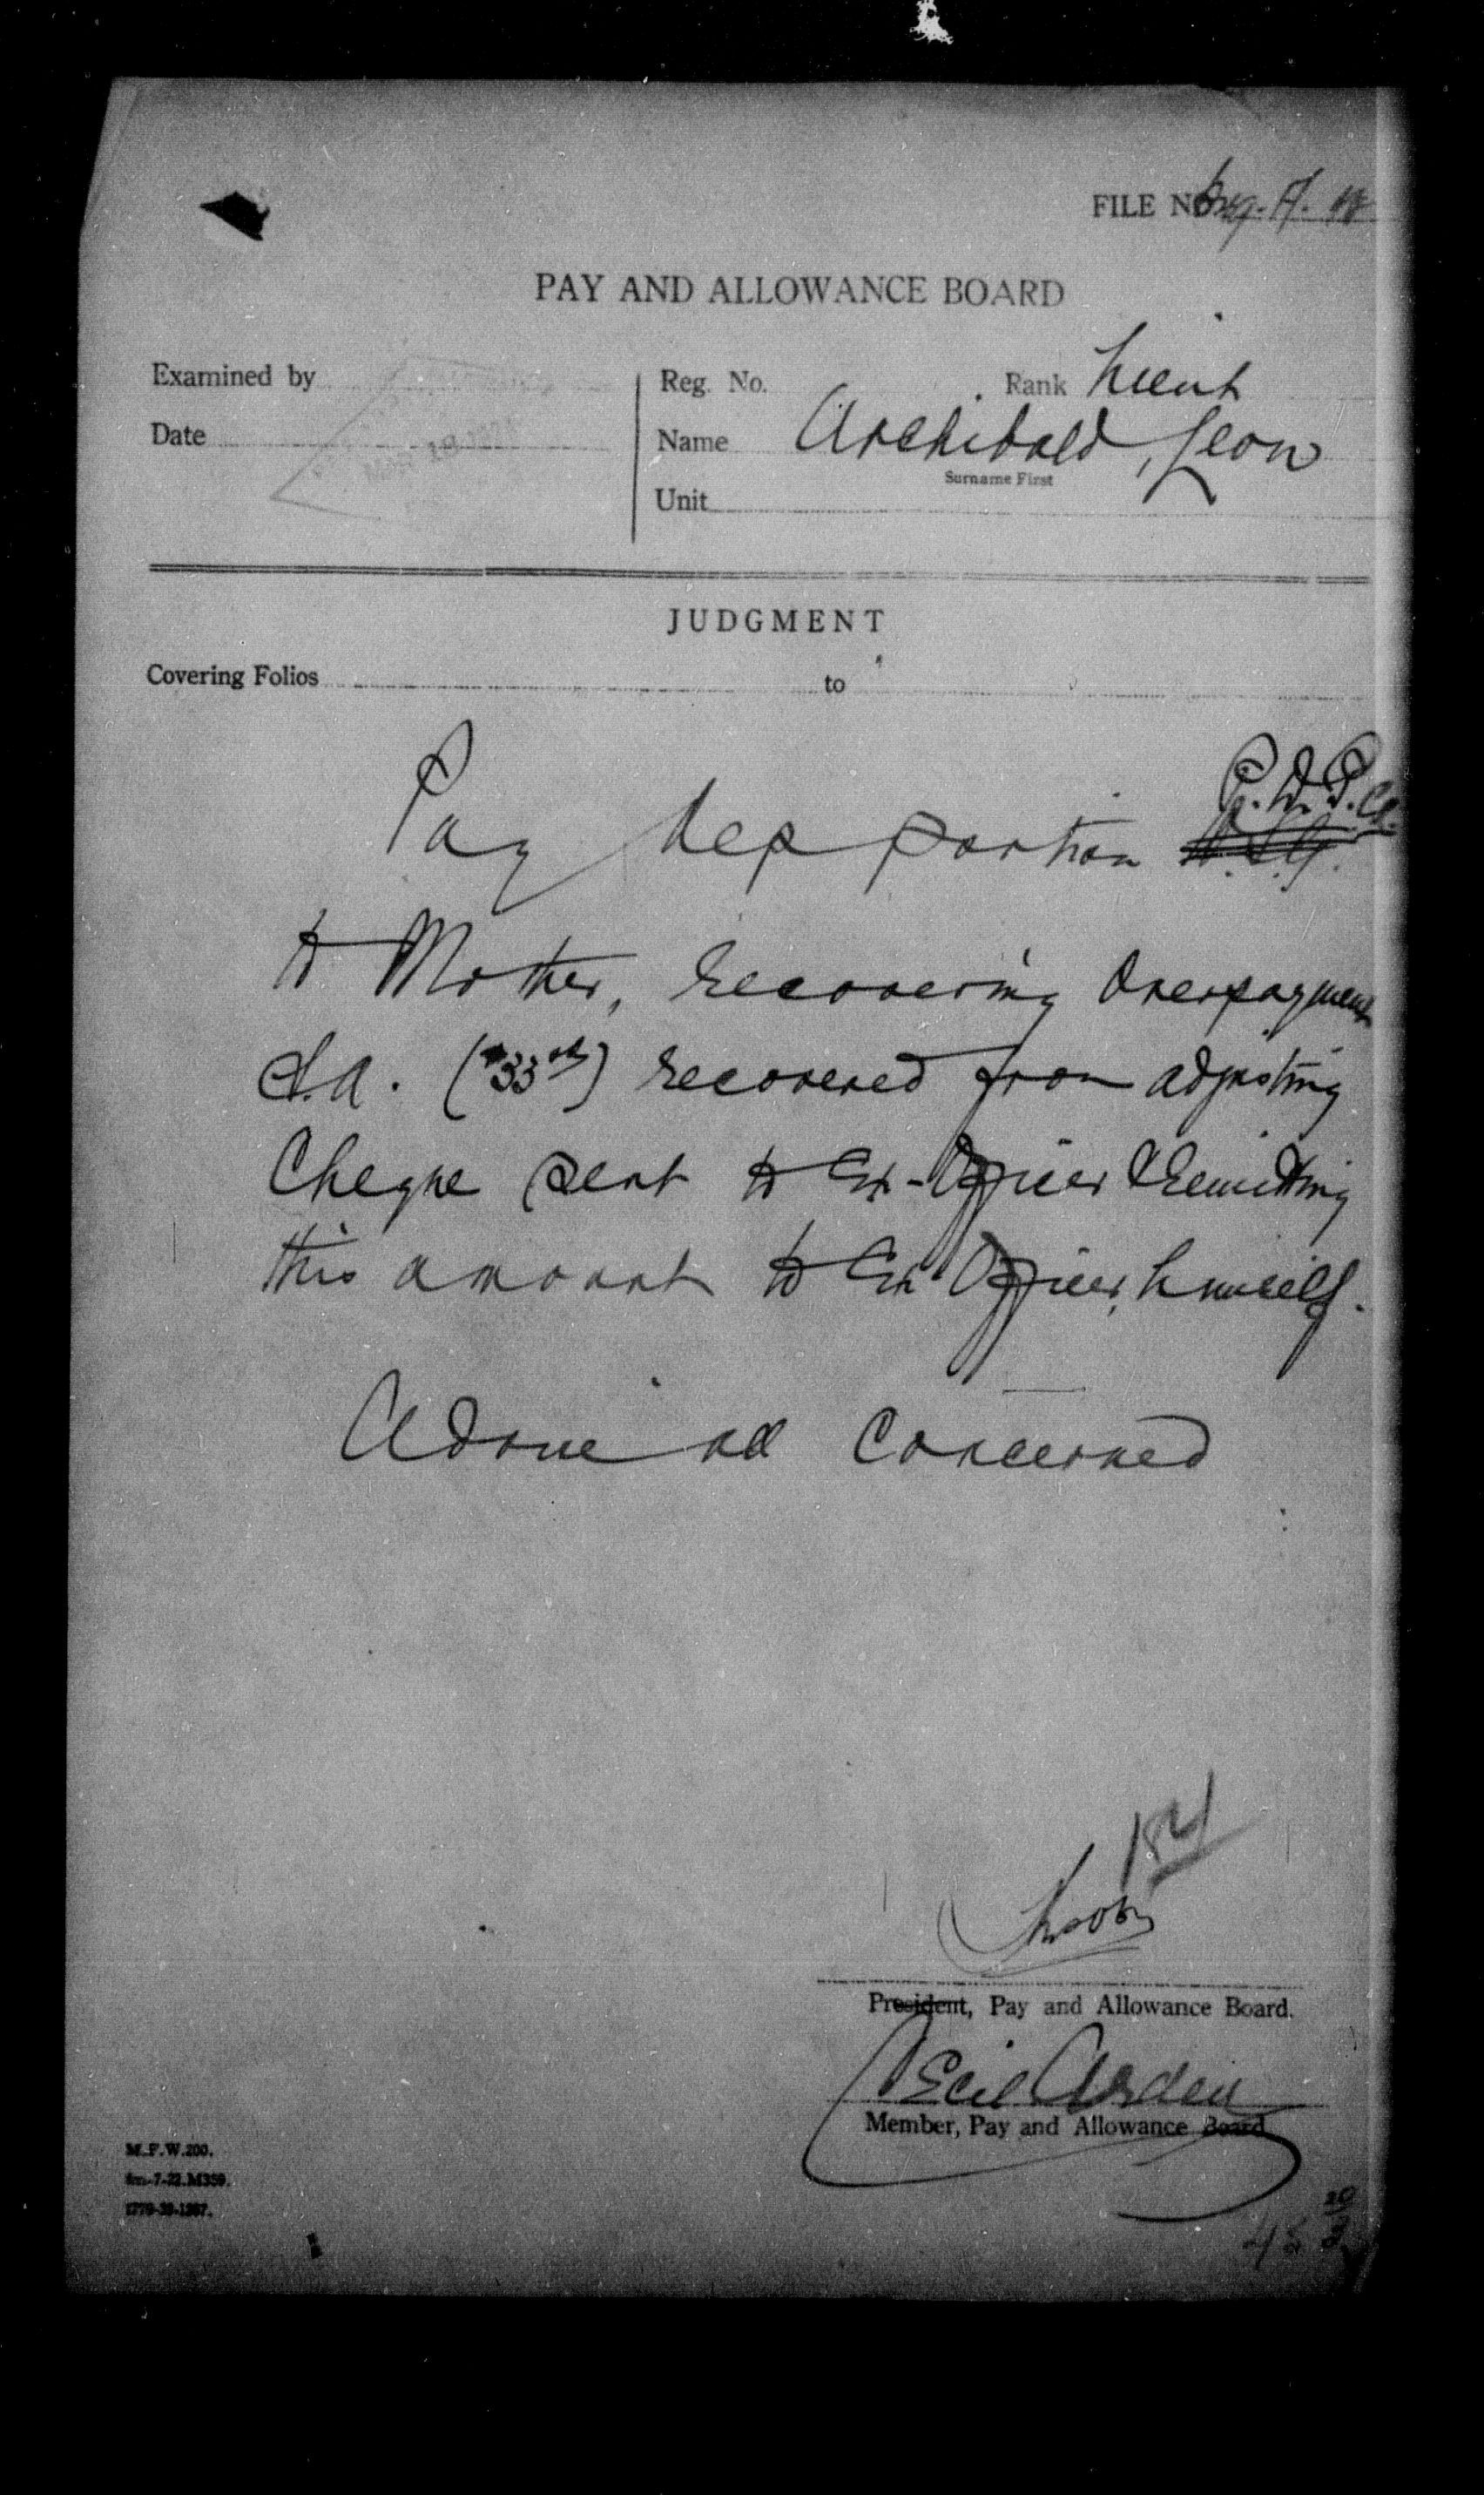 FILE No
PAY AND ALLOWANCE BOARD
Examined by
Date
Reg. No. Rank Lieut
Name Archibald, Leon
Surname First
Unit
JUDGMENT
Covering Folios to
Pay Dep portion W.S.G.
to Mother, recovering overpayment
S.A. ($33) recovered from adjusting
Cheque sent to Ex-Officer & remitting
this amount to Ex Officer himself.
Advise all concerned
184
President, Pay and Allowance Board.
Cecil Arden
Member, Pay and Allowance Board
M.F.W.200.
5m-7-22.M359.
1772-39-1267.